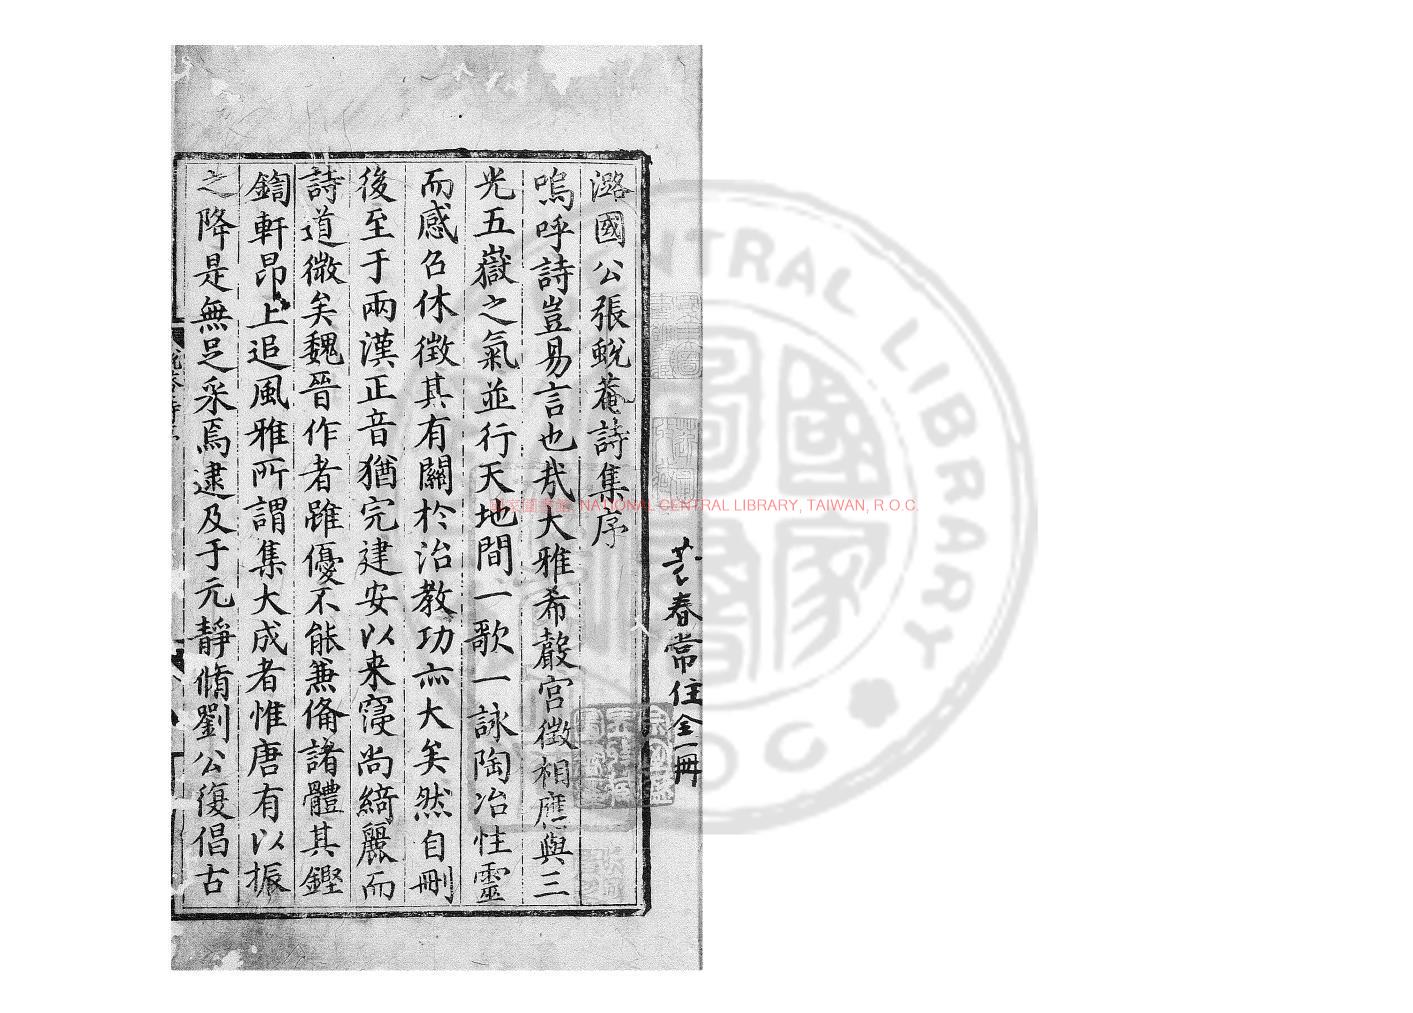 春常住全一冊
潞國公張蛻菴詩集序
嗚呼詩豈易言也㢤大雅希聲宫徵相應與三
光五嶽之氣並行天地間一歌一詠陶冶性靈
而感召休徵其有關於治教功亦大矣然自刪
後至于兩漢正音猶完建安以来寖尚綺麗而
詩道微矣魏晉作者雖優不能兼備諸體其鏗
鍧軒昂上追風雅所謂集大成者惟唐有以振
之降是無足采焉逮及于元靜脩劉公復倡古
國家圖書館 NATIONAL CENTRAL LIBRARY, TAIWAN, R.O.C.
CENTRAL LIBRARY